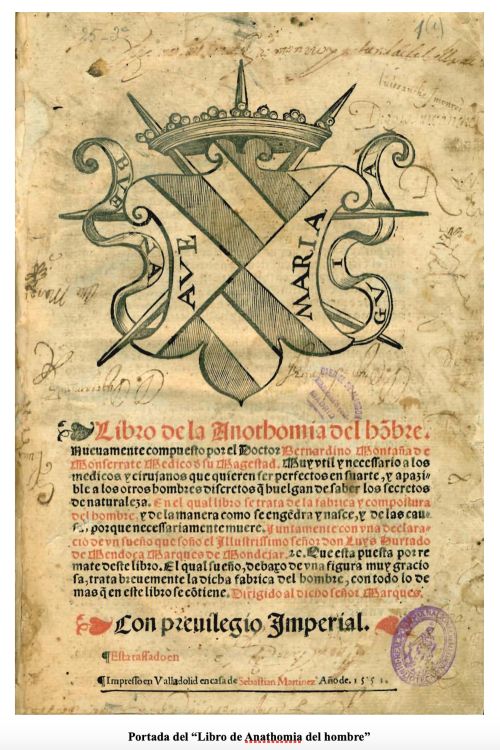 25-2ª
1(1)
BVENA
AVE
MARIA
GVIA
Libro de la Anothomia del hõbre.
Nueuamente compuesto por el Doctor Bernardino Montaña de
Monserrate Medico d̃ su Magestad. Muy vtil y necessario a los
medicos y cirujanos que quieren ser perfectos en su arte, y apazi
ble a los otros hombres discretos q̃ huelgan de saber los secretos
de naturaleza. En el qual libro se trata de la fabrica y compostura
del hombre, y de la manera como se engẽdra y nasce, y de las cau-
sas porque necessariamente muere. Juntamente con vna declara
ciõ de vn sueño que soño el Illustrissimo señor don Luys Hurtado
de Mendoça Marques de Mondejar. ⁊c. Que esta puesta por re
mate deste libro. El qual sueño, debaxo de vna figura muy gracio
sa, trata breuemente la dicha fabrica del hombre, con todo lo de
mas q̃ en este libro se cõtiene. Dirigido al dicho señor Marques.
Con preuilegio Imperial.
¶Esta tassado en
¶Impresso en Valladolid en casa de Sebastian Martinez Año de. 1551.
Portada del “Libro de Anathomia del hombre”